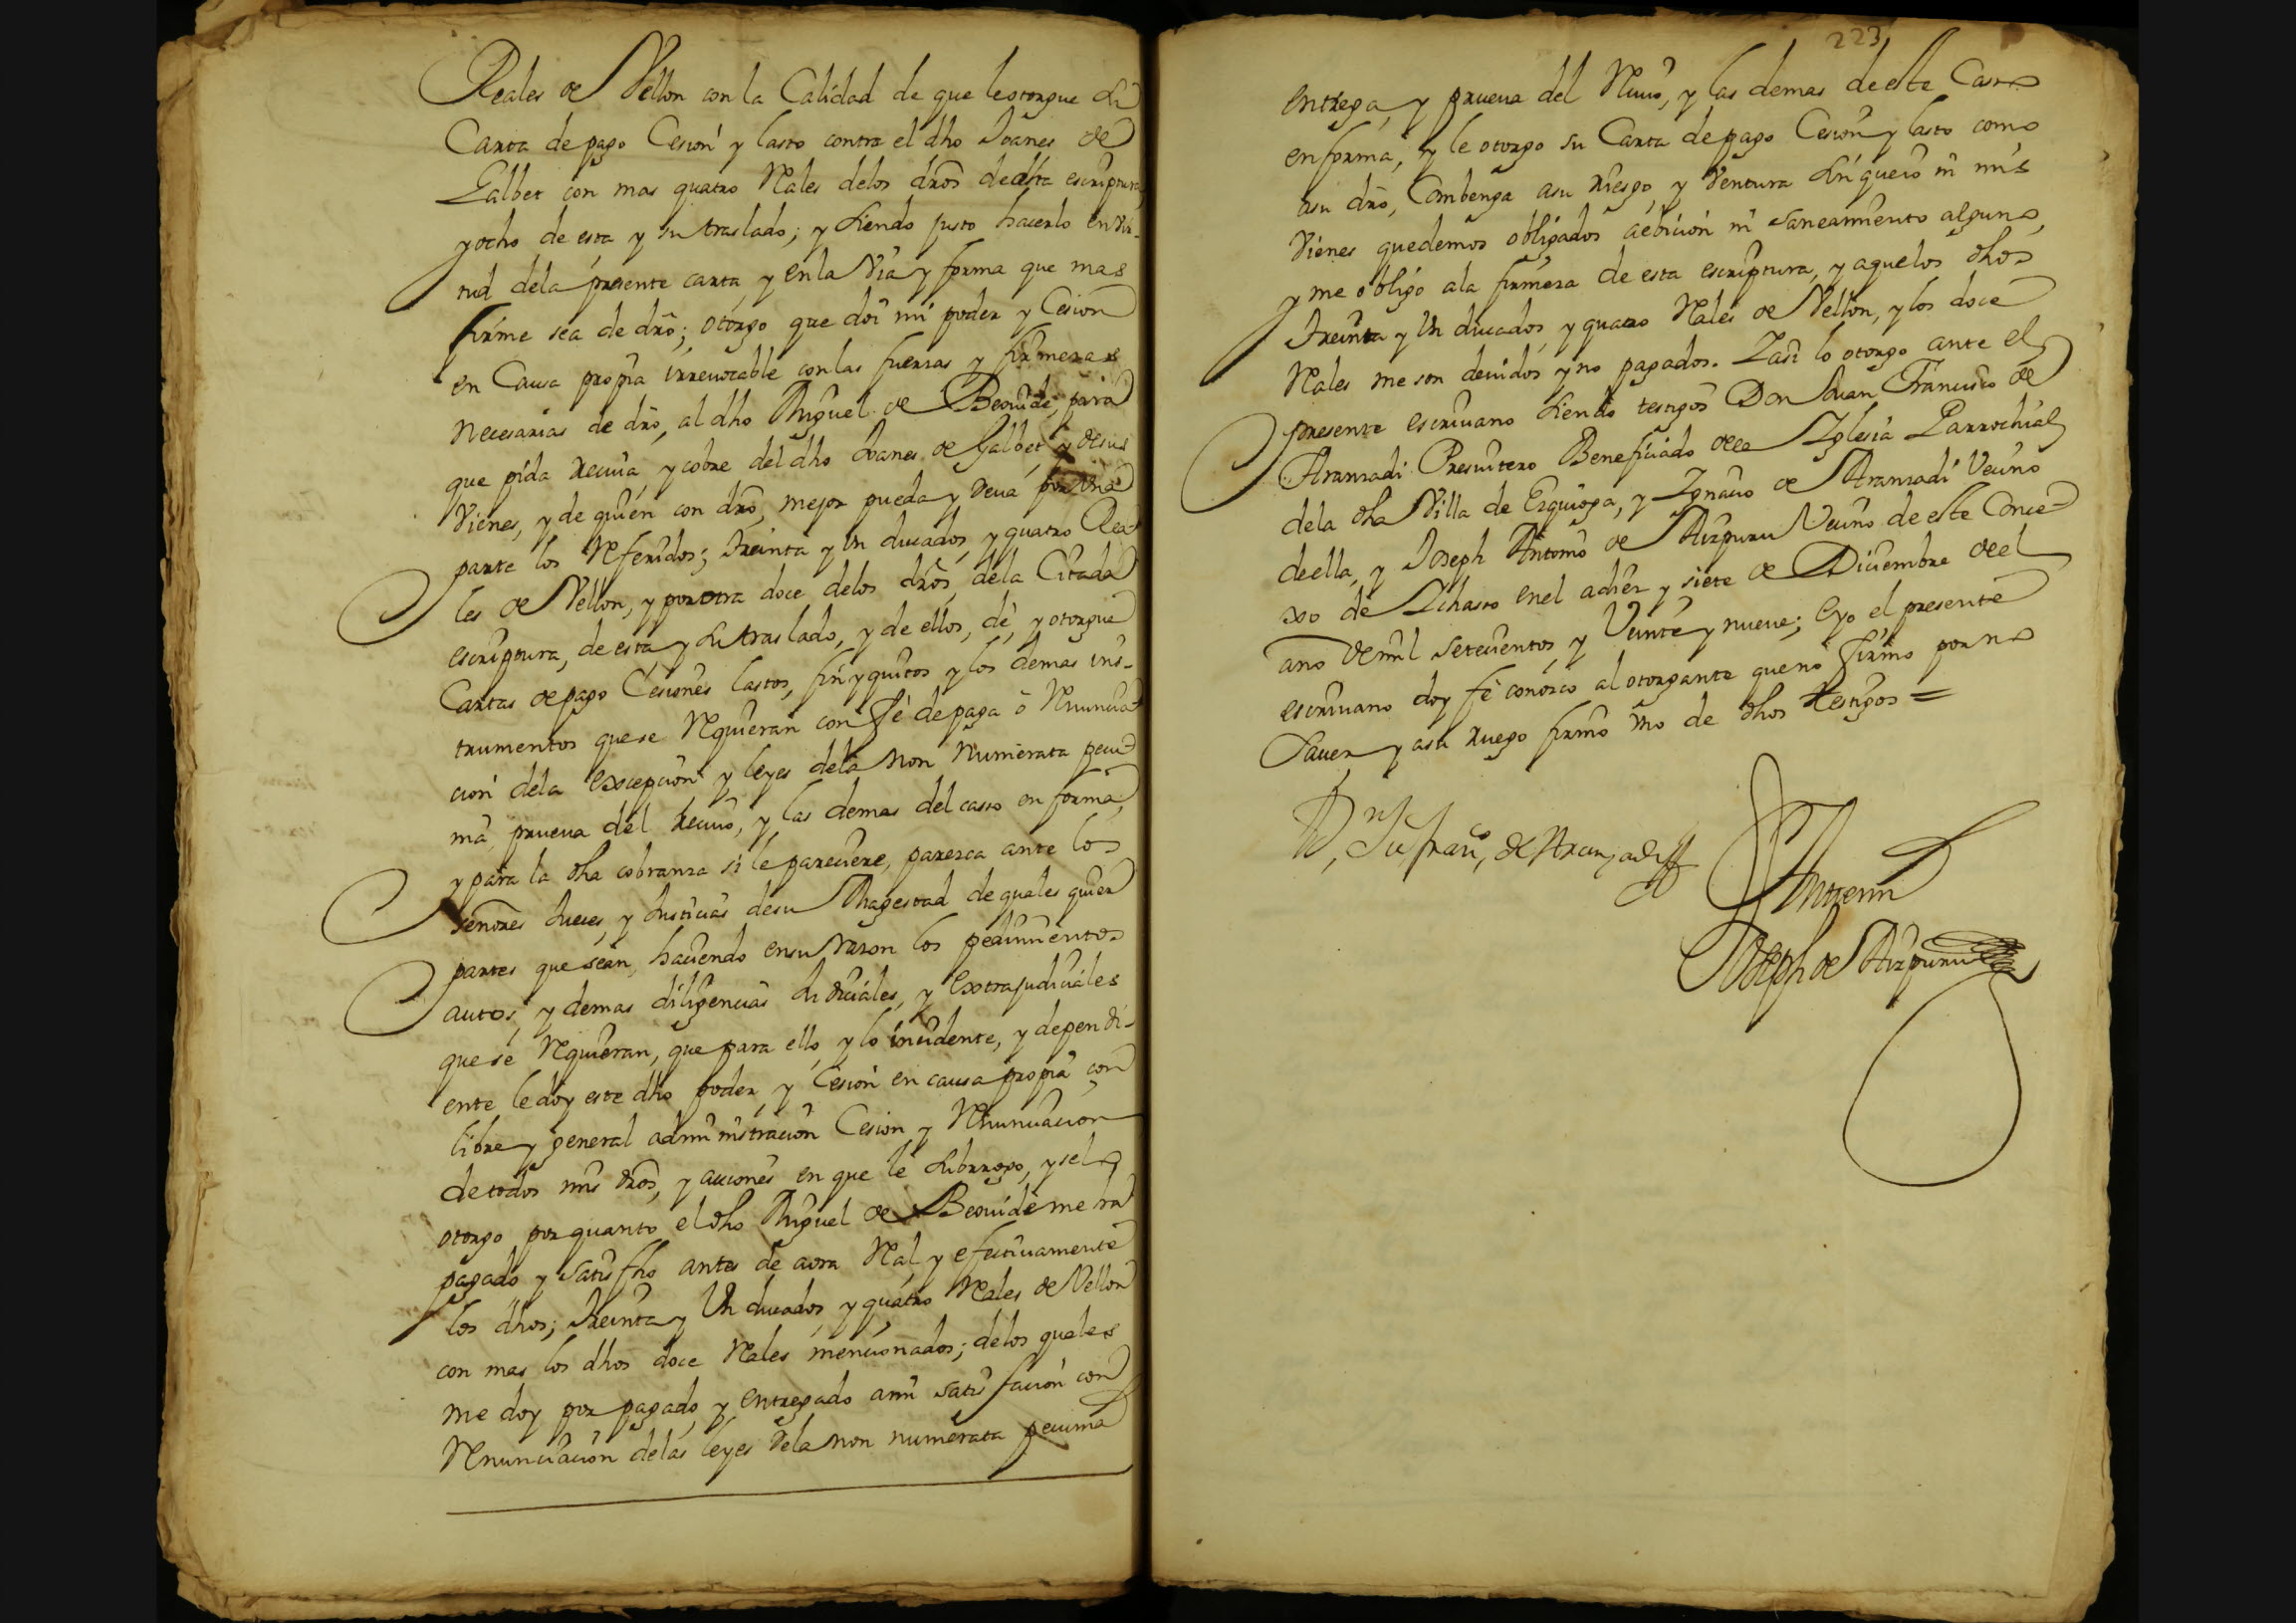 Reales de Vellon con la Calidad de que le otorgue Su
Carta de pago Cesion y lasto contra el dho Joanes de
Galbet con mas quatro Rales delos dros de dsta escriptura,
y ocho de esta y su traslado; y Siendo justo hacerlo en vir-
tud dela presente carta, y en la Via y forma que mas
firme sea de dro; otorgo que doi mi poder y Cesion
en Causa propia irrevocable con las fuerzas y firmezas
Necesarias de dro, al dho Miguel de Beovide, para
que pida reciva, y cobre del dho Joanes de Galbet, y desus
Vienes, y de quien con dro, mejor pueda y deva por Vna
parte los Referidos; Treinta y Un ducados, y quatro Rea-
les de Vellon, y por otra doce delos dros, dela Citada
escriptura, de esta, y Su traslado, y de ellos, dé, y otorgue
Cartas de pago Cesiones lastos, finyquitos y los demas ins-
trumentos que se Requieran con fé de paga ô Renuncia-
cion dela excepcion y leyes dela non Numerata pecu-
nia, prueva del recivo, y las demas del casso en forma,
y para la dha cobranza si le pareciere, paresca ante los
señores Jueces, y Justicias desu Magestad de quales quier
partes que sean, haciendo en su razon los pedimientos
autos, y demas diligencias Judiciales, y extrajudiciales
que se Requieran, que para ello, y lo incidente, y dependi-
ente, le doy este dho poder, y Cesion en causa propia con
libre y general administracion Cesion y Renunciacion
de todos mis dros, y acciones en que le Subrrogo, y se lo
otorgo por quanto el dho Miguel de Beovide me ha
pagado y satisfho antes de aora Ral, y efectivamente
los dhos; Treinta y Un ducados, y quatro Rales de Vellon
con mas los dhos doce Rales mencionados; delos quales
me doy por pagado, y entregado ami satisfacion con
Renunciacion delas leyes dela non numerata pecunia
223
entrega, y prueva del Recivo, y las demas de este Casso
en forma, y le otorgo su Carta de pago Cesion y lasto como
asu dro, Combenga asu riesgo, y Ventura Sin que io ni mis
Vienes quedemos obligados aebicion ni saneamiento alguno,
y me obligo ala firmeza de esta escriptura, y aquelos dhos
Treinta y Un ducados, y quatro Rales de Vellon, y los doce
Rales me son devidos y no pagados. Y asi lo otorgo ante el
presente escrivano Siendo testigos Don Juan Francisco de
Aranzadi Presvitero Beneficiado dela Yglesia Parrochial
dela dha Villa de Ezquioga, y Ygnacio de Aranzadi Vecino
de ella, y Joseph Antonio de Aizpuru Vecino de este Conce-
xo de Ychaso en el adiez y siete de Diciembre del
año demil setecientos, y Veinte y nueve; e yo el presente
escrivano doy fé conozco al otorgante que no firmo por no
Saver y asu ruego firmó vno de dhos testigos =
Dn Ju fran.co de Aranzadi
Antemi
Joseph de Aizpuru